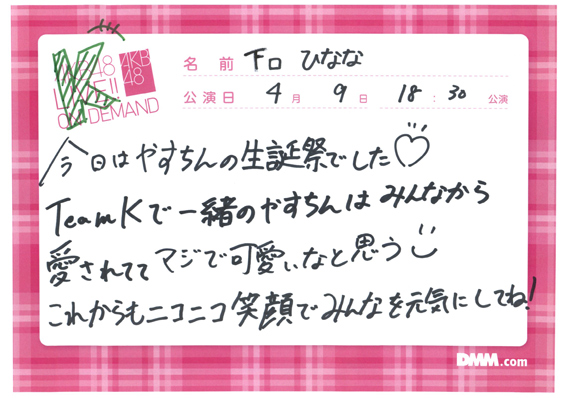 K
AKB48
LIVE!!
ON DEMAND
AKB
48
名前 下口 ひなな
公演日 4月 9日 18:30 公演
今日はやすちんの生誕祭でした♡
TeamKで一緒のやすちんはみんなから
愛されててマジで可愛いなと思う
これからもニコニコ笑顔でみんなを元気にしてね!
DMM.com